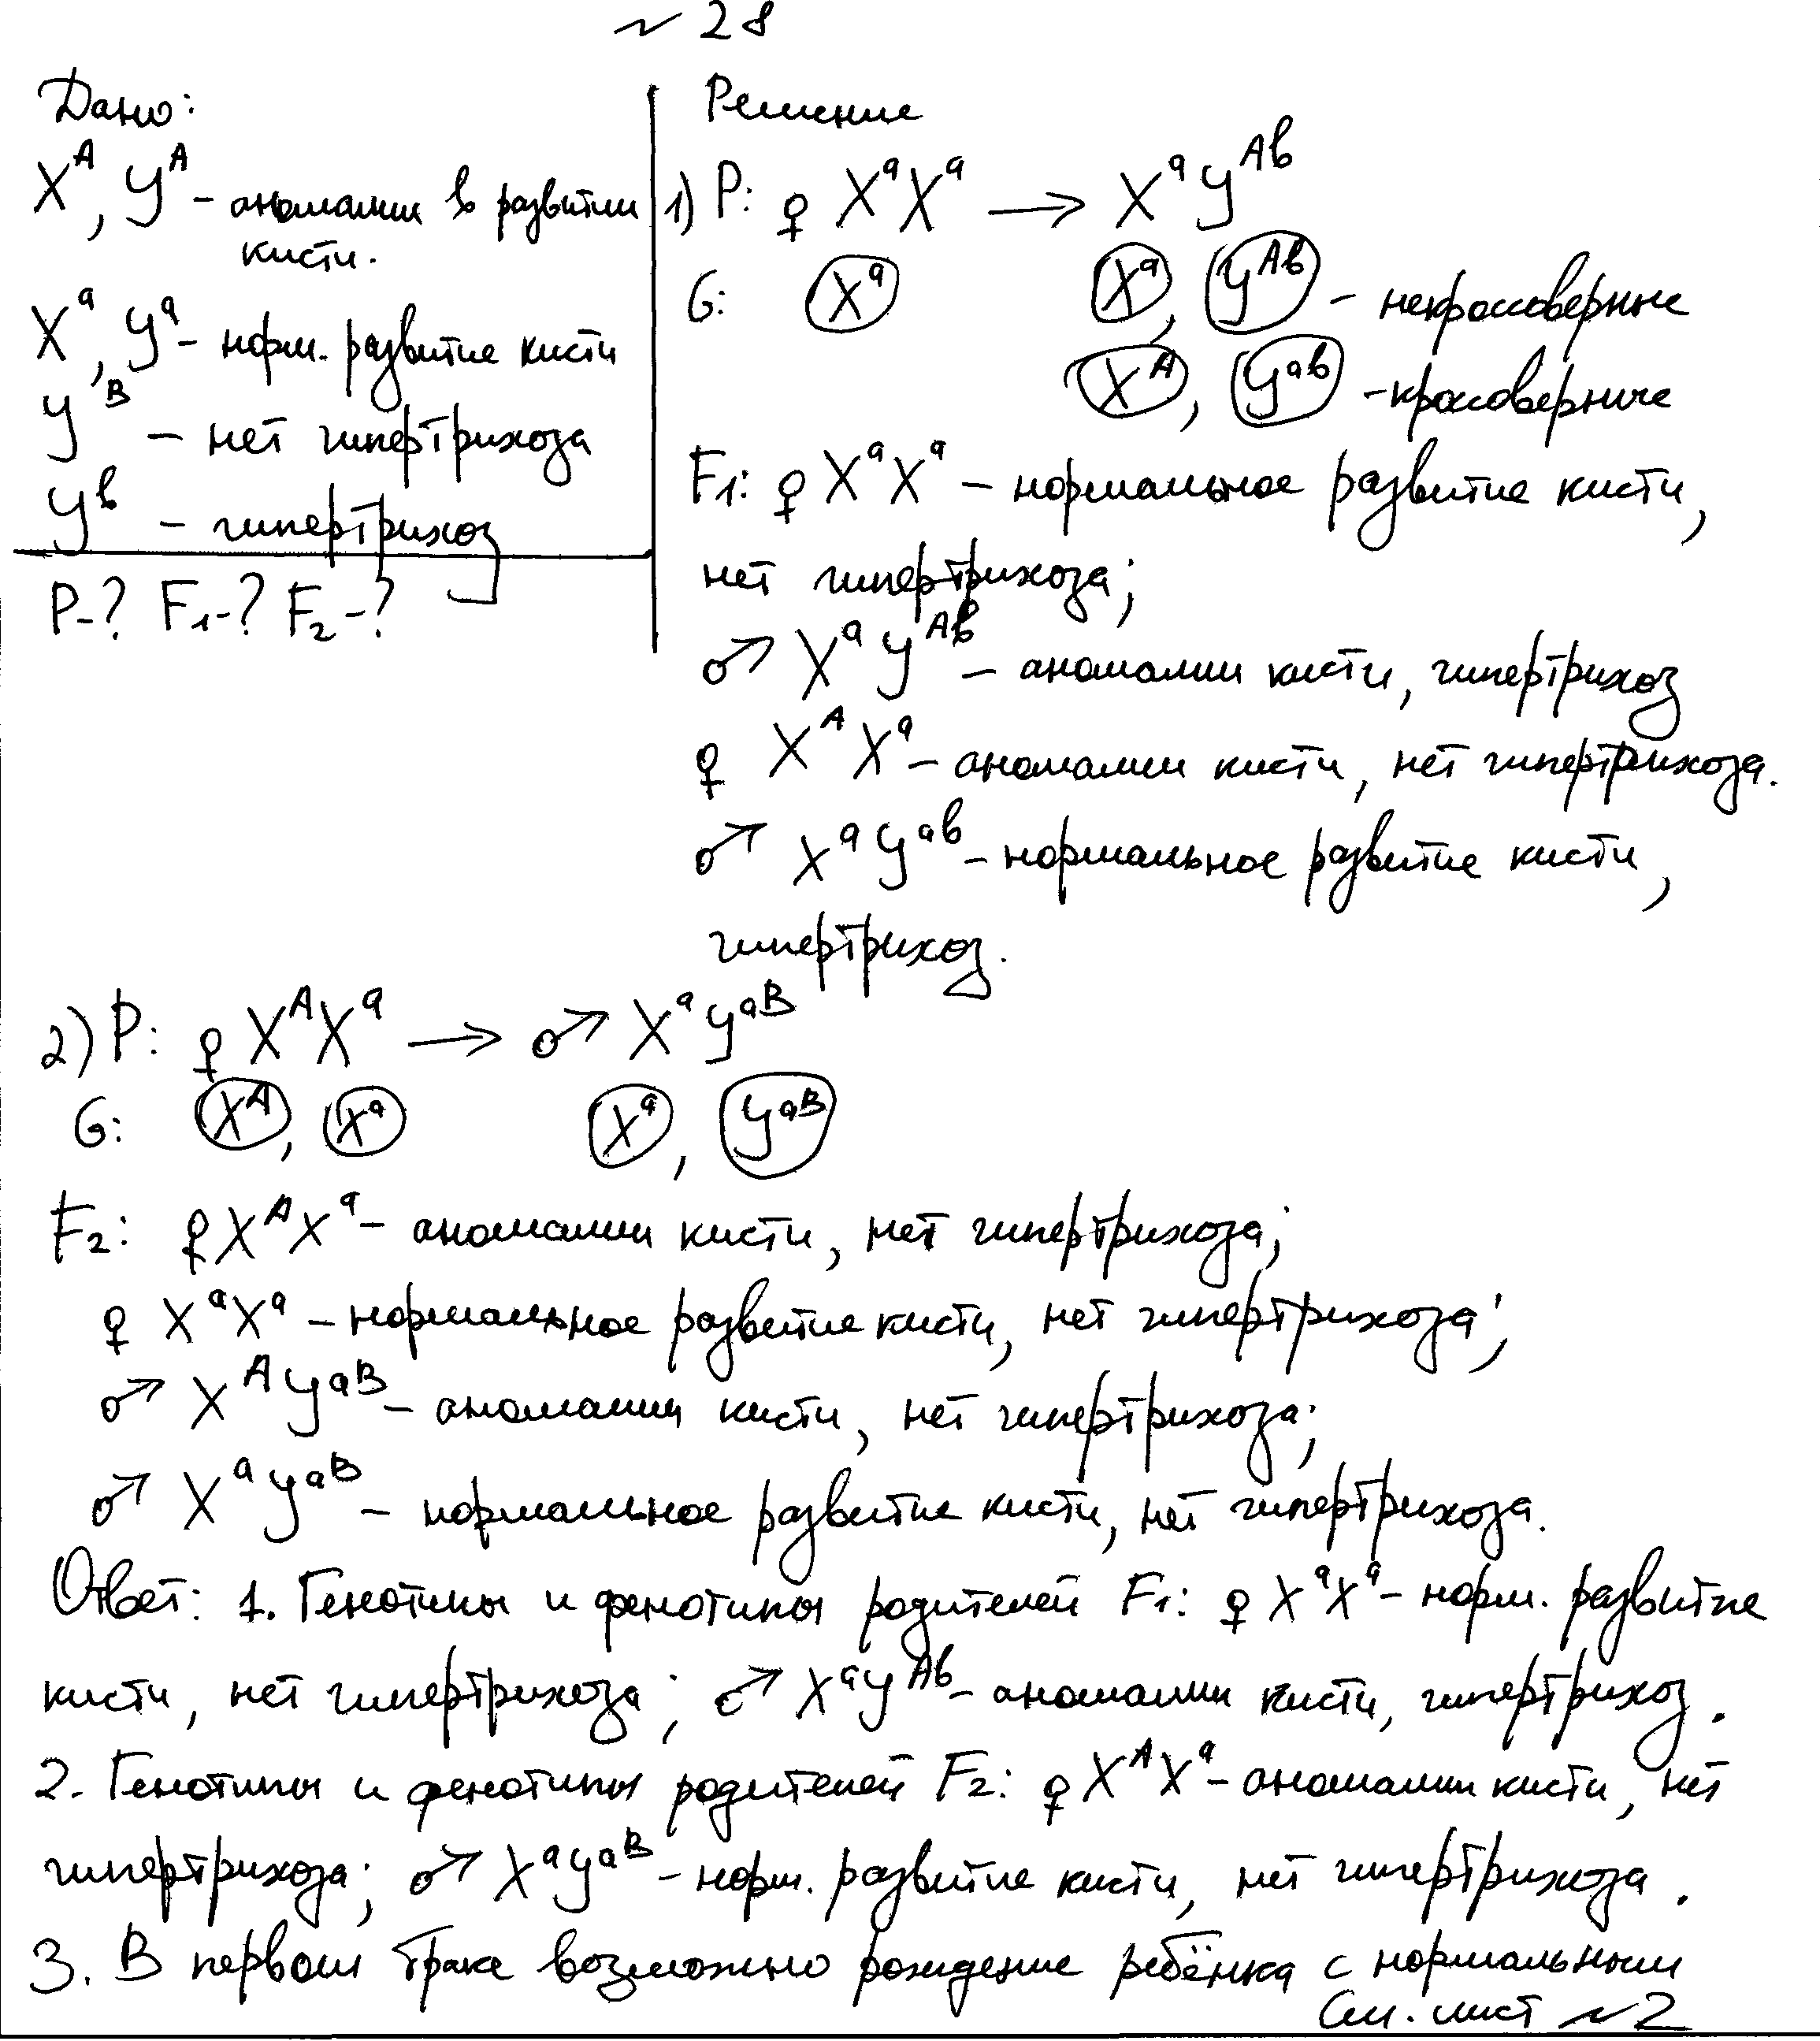 ~ 28
Дано:
X^A, Y^A - аномалии в развитии
кисти.
X^a, Y^a - норм. развитие кисти
Y^B - нет гипертрихоза
Y^b - гипертрихоз
P-? F1-? F2-?
Решение
1) P: ♀ X^a X^a → X^a Y^Ab
G: X^a X^a, Y^Ab - некроссоверные
X^A, Y^ab - кроссоверные
F1: ♀ X^a X^a - нормальное развитие кисти,
нет гипертрихоза;
♂ X^a Y^Ab - аномалии кисти, гипертрихоз
♀ X^A X^a - аномалии кисти, нет гипертрихоза.
♂ X^a Y^ab - нормальное развитие кисти,
гипертрихоз.
2) P: ♀ X^A X^a → ♂ X^a Y^aB
G: X^A, X^a X^a, Y^aB
F2: ♀ X^A X^a - аномалии кисти, нет гипертрихоза;
♀ X^a X^a - нормальное развитие кисти, нет гипертрихоза;
♂ X^A Y^aB - аномалии кисти, нет гипертрихоза;
♂ X^a Y^aB - нормальное развитие кисти, нет гипертрихоза.
Ответ: 1. Генотипы и фенотипы родителей F1: ♀ X^a X^a - норм. развитие
кисти, нет гипертрихоза; ♂ X^a Y^Ab - аномалии кисти, гипертрихоз.
2. Генотипы и фенотипы родителей F2: ♀ X^A X^a - аномалии кисти, нет
гипертрихоза; ♂ X^a Y^aB - норм. развитие кисти, нет гипертрихоза.
3. В первом браке возможно рождение ребёнка с нормальным
См. лист ~2